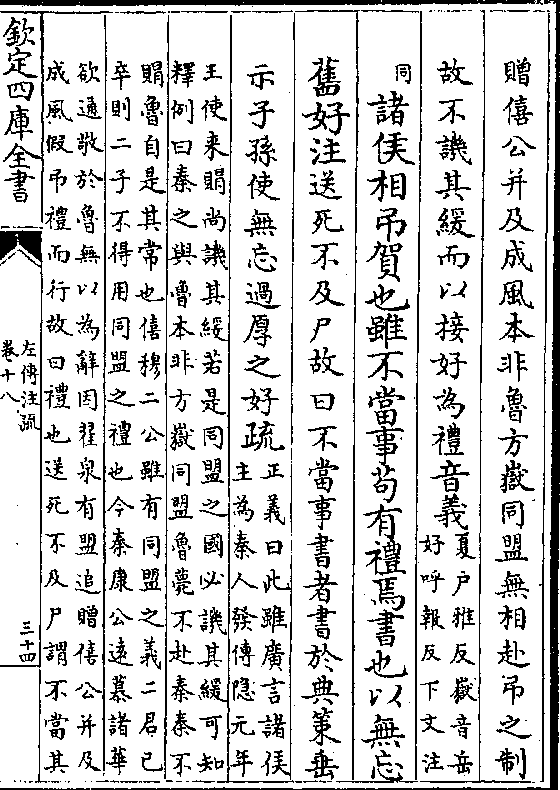 贈僖公并及成風本非魯方嶽同盟無相赴弔之制
故不譏其緩而以接好為禮音義夏戶雅反嶽音岳
好呼報反下文注
同諸侯相弔賀也雖不當事苟有禮焉書也以無忘
舊好注送死不及尸故曰不當事書者書於典策垂
示子孫使無忘過厚之好疏正義曰此雖廣言諸侯
主為秦人發傳隱元年
王使来賵尚譏其緩若是同盟之國必譏其緩可知
釋例曰秦之與魯本非方嶽同盟魯薨不赴秦秦不
賵魯自是其常也僖穆二公雖有同盟之義二君已
卒則二子不得用同盟之禮也今秦康公遠慕諸華
欲通敬於魯無以為辭因翟泉有盟追贈僖公并及
成風假弔禮而行故曰禮也送死不及尸謂不當其
欽定四庫全書
左傳注疏
卷十八
三十四